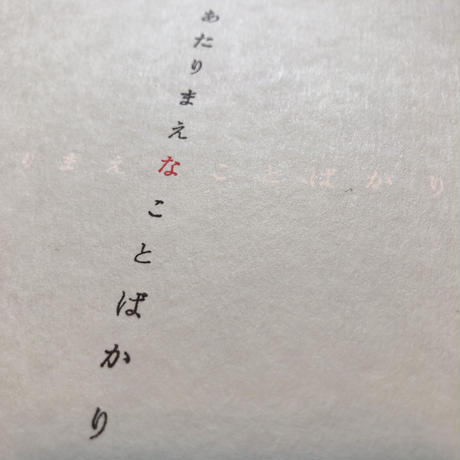 あたりまえなことばかり
りまえなことばかり